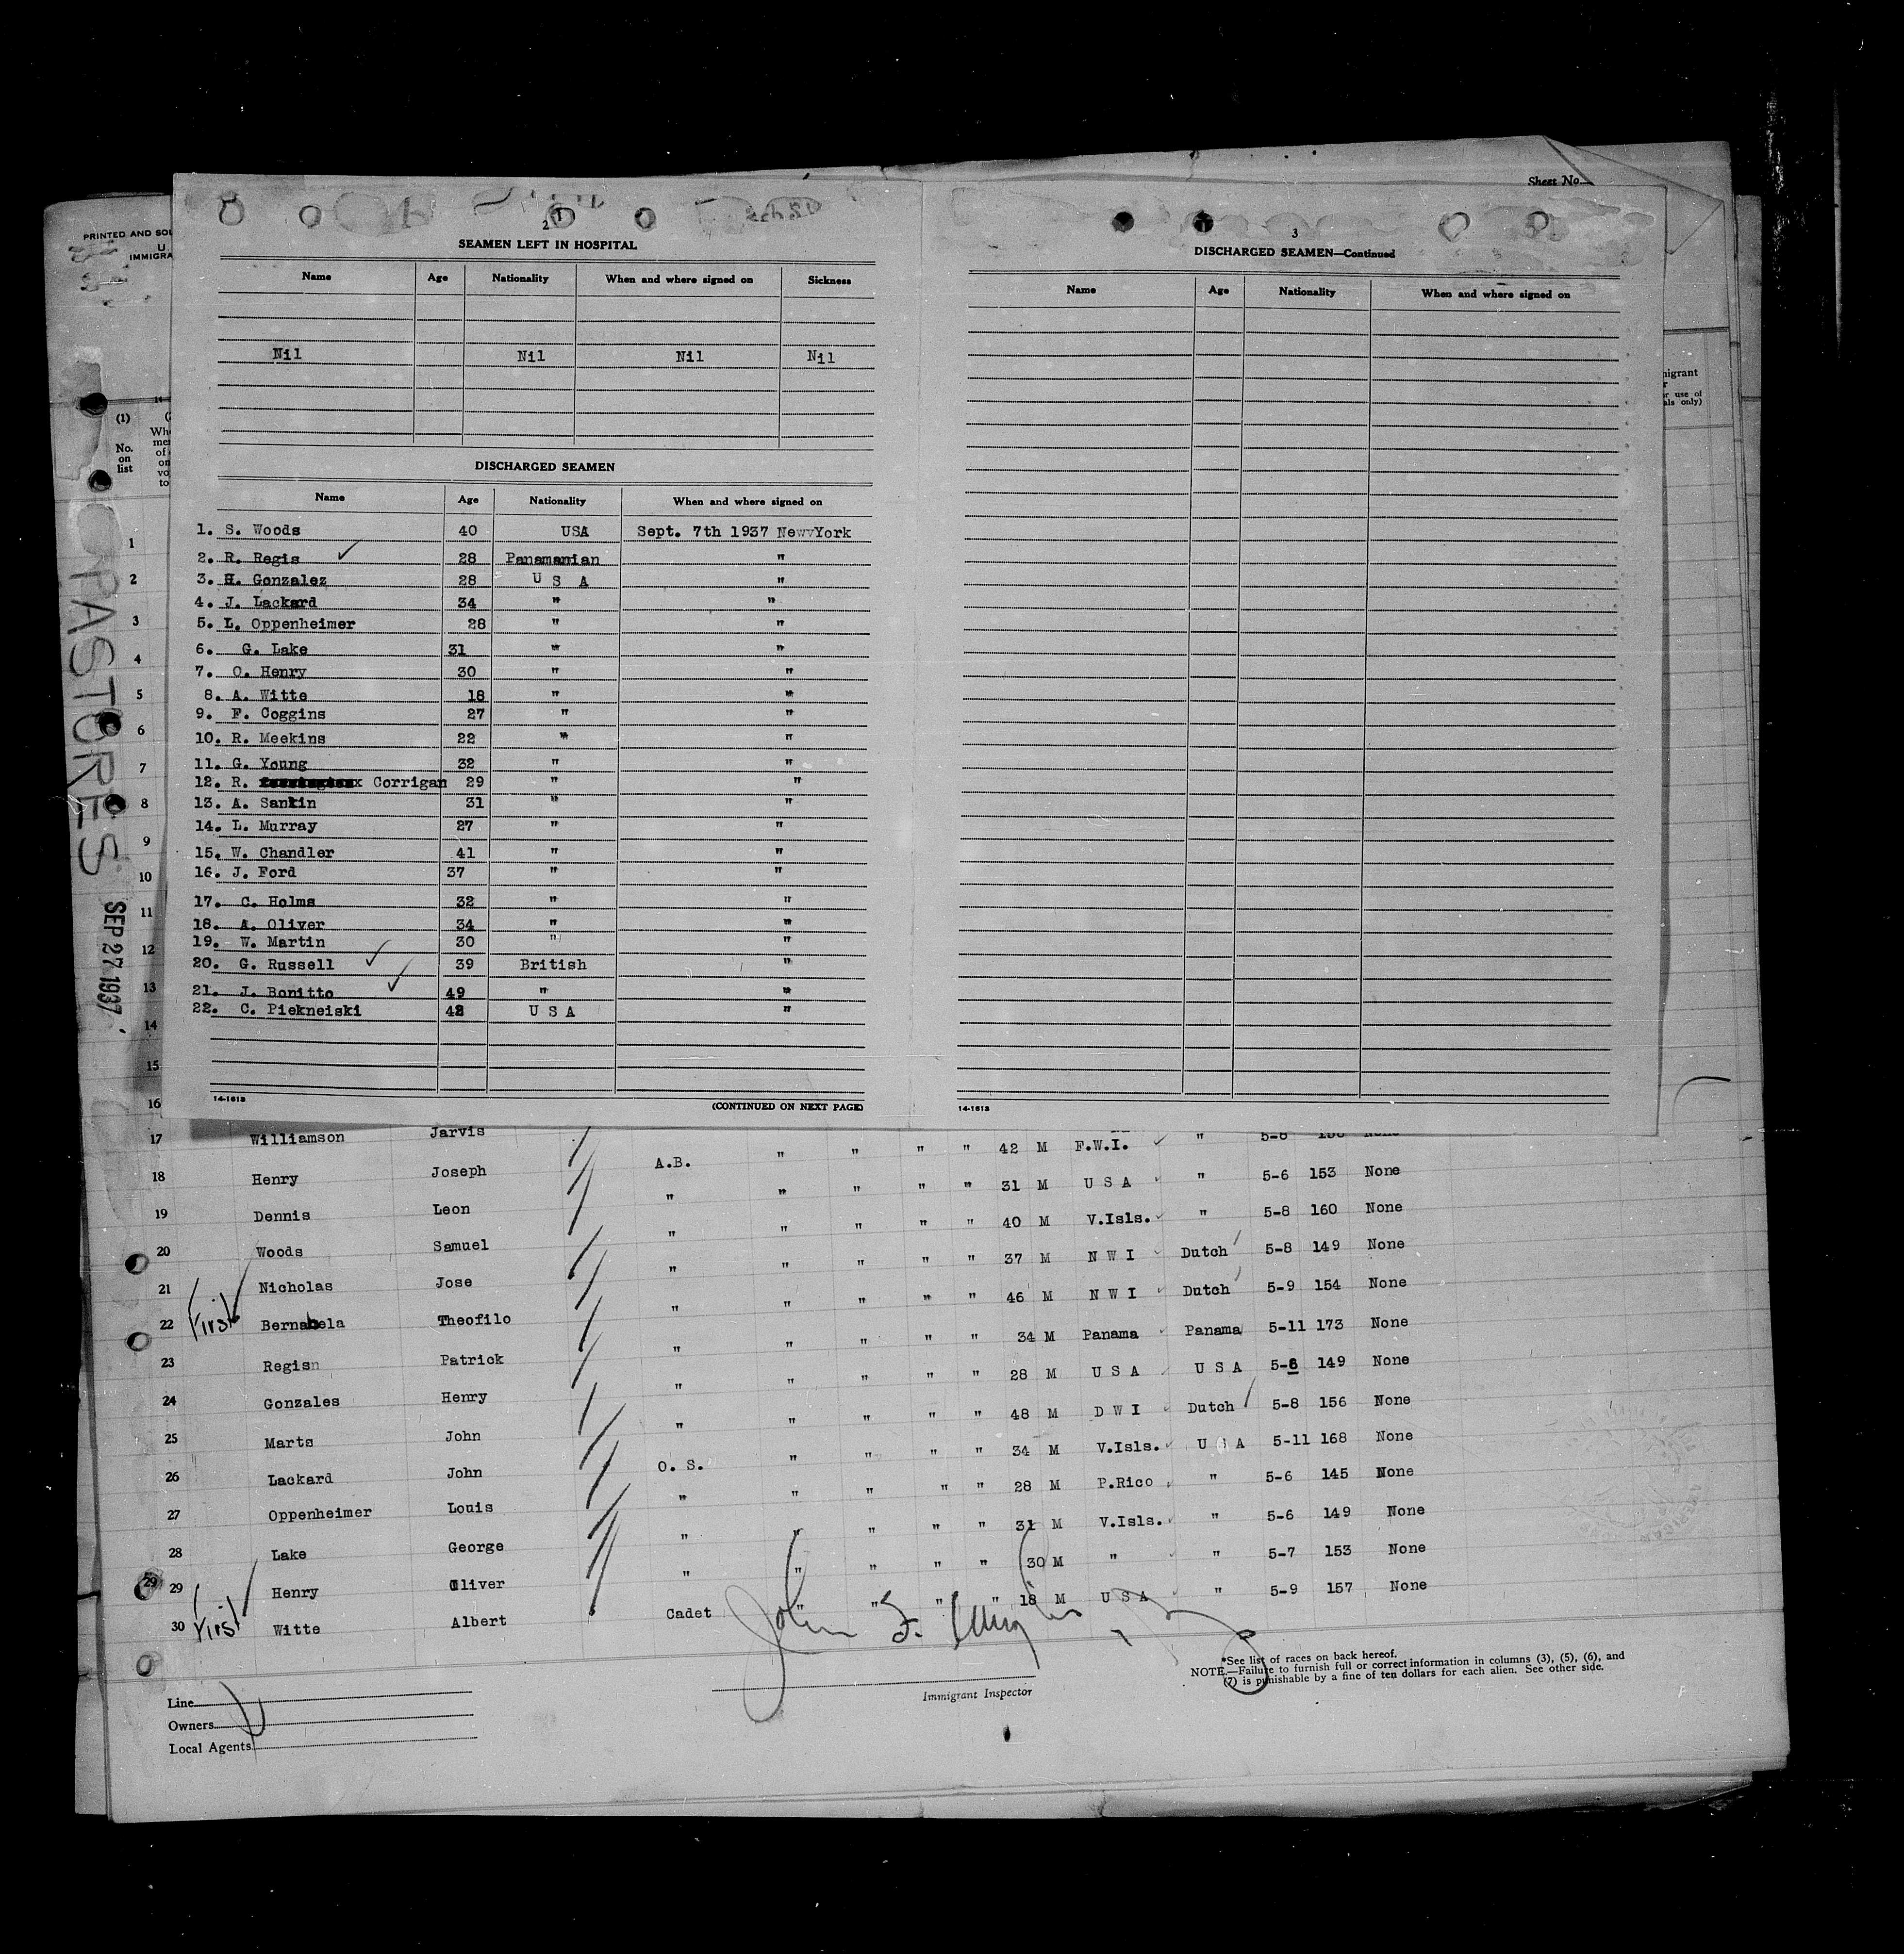 Sheet No.
PRINTED AND SOL
U
IMMIGRA
2
SEAMEN LEFT IN HOSPITAL
Name Age Nationality When and where signed on Sickness
Nil Nil Nil Nil
DISCHARGED SEAMEN
Name Age Nationality When and where signed on
1. S. Woods 40 USA Sept. 7th 1937 New York
2. R. Regis 28 Panamanian "
3. H. Gonzalez 28 U S A "
4. J. Lackard 34 " "
5. L. Oppenheimer 28 " "
6. G. Lake 31 " "
7. O. Henry 30 " "
8. A. Witte 18 " "
9. F. Coggins 27 " "
10. R. Meekins 22 " "
11. G. Young 32 " "
12. R. Corrigan 29 " "
13. A. Sankin 31 " "
14. L. Murray 27 " "
15. W. Chandler 41 " "
16. J. Ford 37 " "
17. C. Holms 32 " "
18. A. Oliver 34 " "
19. W. Martin 30 " "
20. G. Russell 39 British "
21. J. Bonitto 49 " "
22. C. Piekneiski 42 U S A "
14-1613
(CONTINUED ON NEXT PAGE)
3
DISCHARGED SEAMEN—Continued
Name Age Nationality When and where signed on
14-1613
migrant
r
r use of
als only)
(1)
No.
on
list
PASTORES
SEP 27 1937
1
2
3
4
5
6
7
8
9
10
11
12
13
14
15
16
17 Williamson Jarvis " " " " 42 M F.W.I. " 5-8 None
18 Henry Joseph A.B. " " " " 31 M U S A " 5-6 153 None
19 Dennis Leon " " " " " 40 M V.Isls. " 5-8 160 None
20 Woods Samuel " " " " " 37 M N W I Dutch 5-8 149 None
21 Nicholas Jose " " " " " 46 M N W I Dutch 5-9 154 None
22 First Bernabela Theofilo " " " " " 34 M Panama Panama 5-11 173 None
23 Regis Patrick " " " " " 28 M U S A U S A 5-6 149 None
24 Gonzales Henry " " " " " 48 M D W I Dutch 5-8 156 None
25 Marts John " " " " " 34 M V.Isls. U S A 5-11 168 None
26 Lackard John O. S. " " " " 28 M P.Rico " 5-6 145 None
27 Oppenheimer Louis " " " " " 31 M V.Isls. " 5-6 149 None
28 Lake George " " " " " 30 M " " 5-7 153 None
29 Henry Oliver " " " " " 18 M U S A " 5-9 157 None
30 First Witte Albert Cadet
Immigrant Inspector
Line
Owners
Local Agents
*See list of races on back hereof.
NOTE.—Failure to furnish full or correct information in columns (3), (5), (6), and
(7) is punishable by a fine of ten dollars for each alien. See other side.